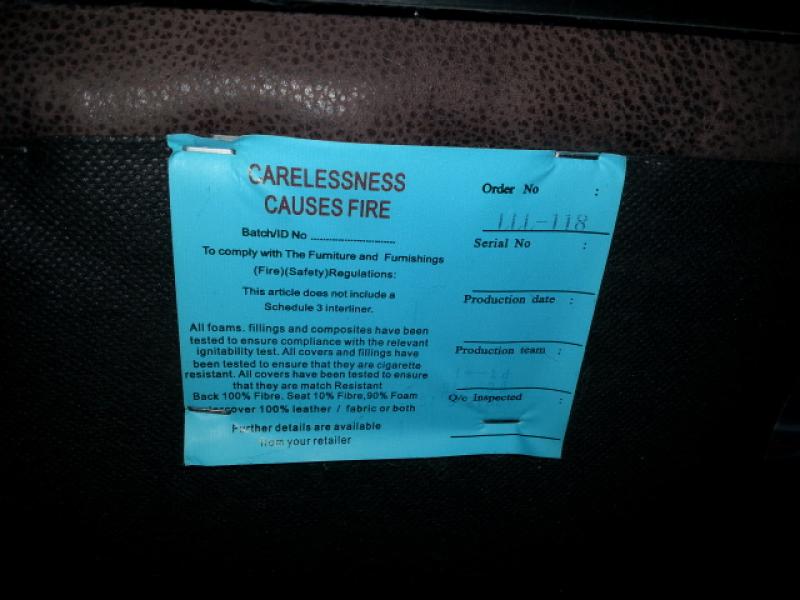 CARELESSNESS
CAUSES FIRE
Batch/ID No ........................
To comply with The Furniture and Furnishings
(Fire)(Safety)Regulations:
This article does not include a
Schedule 3 interliner.
All foams. fillings and composites have been
tested to ensure compliance with the relevant
ignitability test. All covers and fillings have
been tested to ensure that they are cigarette
resistant. All covers have been tested to ensure
that they are match Resistant
Back 100% Fibre. Seat 10% Fibre,90% Foam
100% leather / fabric or both
Further details are available
from your retailer
Order No :
111-118
Serial No :
Production date :
Production team :
Q/c Inspected :